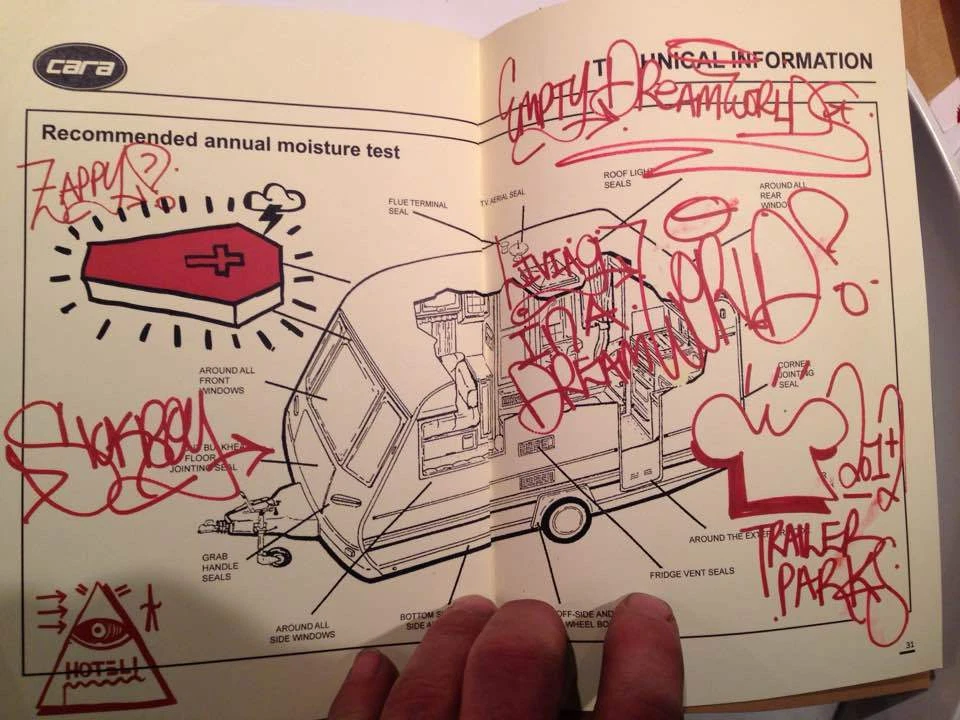 cara
TECHNICAL INFORMATION
EMPTY DREAMWORLDS
Recommended annual moisture test
ZAPPY?
FLUE TERMINAL
SEAL
T.V. AERIAL SEAL
ROOF LIGHT
SEALS
AROUND ALL
REAR
WINDO
LIVING
IN A
DREAMWORLD
AROUND ALL
FRONT
WINDOWS
CORNER
JOINTING
SEAL
SICKBOY
BULKHEA
FLOOR
JOINTING SEAL
GRAB
HANDLE
SEALS
AROUND THE EXTER
TRAILER
PARKS
FRIDGE VENT SEALS
HOTEL!
AROUND ALL
SIDE WINDOWS
BOTTOM S
SIDE A
OFF-SIDE AND
WHEEL BO
31